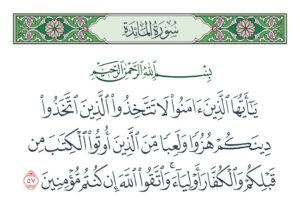 سُورَةُ المَائِدَةِ
بِسْمِ اللَّهِ الرَّحْمَٰنِ الرَّحِيمِ
يَٰٓأَيُّهَا ٱلَّذِينَ ءَامَنُوا۟ لَا تَتَّخِذُوا۟ ٱلَّذِينَ ٱتَّخَذُوا۟
دِينَكُمْ هُزُوًا وَلَعِبًا مِّنَ ٱلَّذِينَ أُوتُوا۟ ٱلْكِتَٰبَ مِن
قَبْلِكُمْ وَٱلْكُفَّارَ أَوْلِيَآءَ ۚ وَٱتَّقُوا۟ ٱللَّهَ إِن كُنتُم مُّؤْمِنِينَ ٥٧